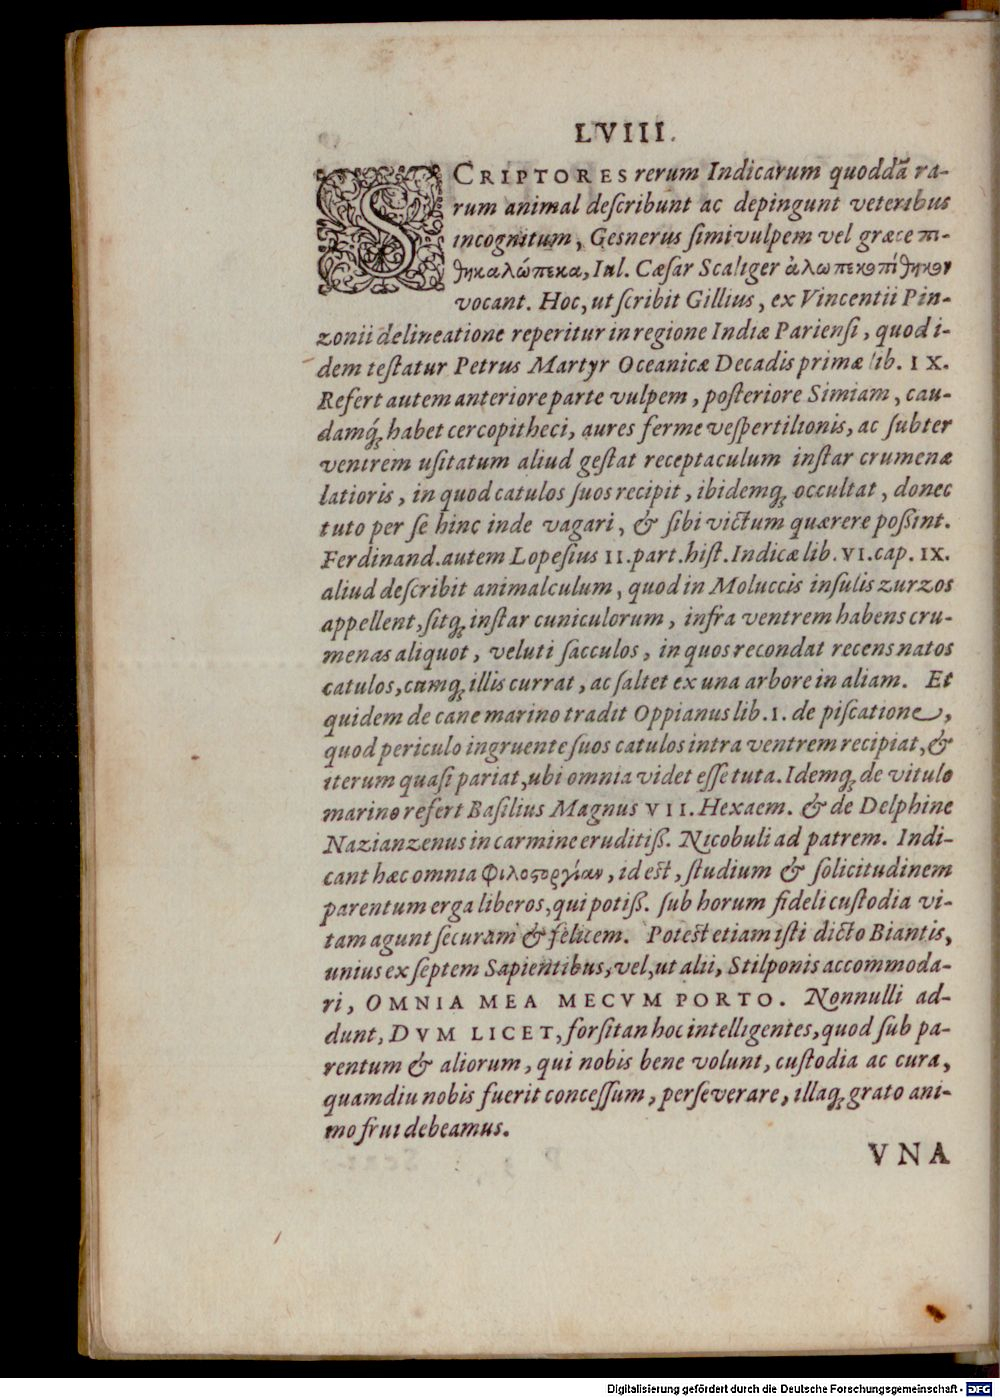 LVIII.
SCRIPTORES rerum Indicarum quoddã ra-
rum animal deſcribunt ac depingunt veteribus
incognitum, Geſnerus ſimivulpem vel græce πι-
θηκαλώπεκα, Iul. Cæſar Scaliger ἀλωπεκοπίθηκον
vocant. Hoc, ut ſcribit Gillius, ex Vincentii Pin-
zonii delineatione reperitur in regione Indiæ Parienſi, quod i-
dem teſtatur Petrus Martyr Oceanicæ Decadis primæ lib. IX.
Refert autem anteriore parte vulpem, poſteriore Simiam, cau-
damq́; habet cercopitheci, aures ferme veſpertilionis, ac ſubter
ventrem uſitatum aliud geſtat receptaculum inſtar crumenæ
latioris, in quod catulos ſuos recipit, ibidemq́; occultat, donec
tuto per ſe hinc inde vagari, & ſibi victum quærere poßint.
Ferdinand. autem Lopeſius II. part. hiſt. Indicæ lib. VI. cap. IX.
aliud deſcribit animalculum, quod in Moluccis inſulis zurzos
appellent, ſitq́; inſtar cuniculorum, infra ventrem habens cru-
menas aliquot, veluti ſacculos, in quos recondat recens natos
catulos, cumq́; illis currat, ac ſaltet ex una arbore in aliam. Et
quidem de cane marino tradit Oppianus lib. I. de piſcatione,
quod periculo ingruente ſuos catulos intra ventrem recipiat, &
iterum quaſi pariat, ubi omnia videt eſſe tuta. Idemq́; de vitulo
marino refert Baſilius Magnus VII. Hexaem. & de Delphine
Nazianzenus in carmine eruditiß. Nicobuli ad patrem. Indi-
cant hæc omnia Φιλοϛοργίαν, id eſt, ſtudium & ſolicitudinem
parentum erga liberos, qui potiß. ſub horum fideli cuſtodia vi-
tam agunt ſecuram & felicem. Poteſt etiam iſti dicto Biantis,
unius ex ſeptem Sapientibus, vel, ut alii, Stilponis accommoda-
ri, OMNIA MEA MECVM PORTO. Nonnulli ad-
dunt, DVM LICET, forſitan hoc intelligentes, quod ſub pa-
rentum & aliorum, qui nobis bene volunt, cuſtodia ac cura,
quamdiu nobis fuerit conceſſum, perſeverare, illaq́; grato ani-
mo frui debeamus.
VNA
Digitalisierung gefördert durch die Deutsche Forschungsgemeinschaft - DFG